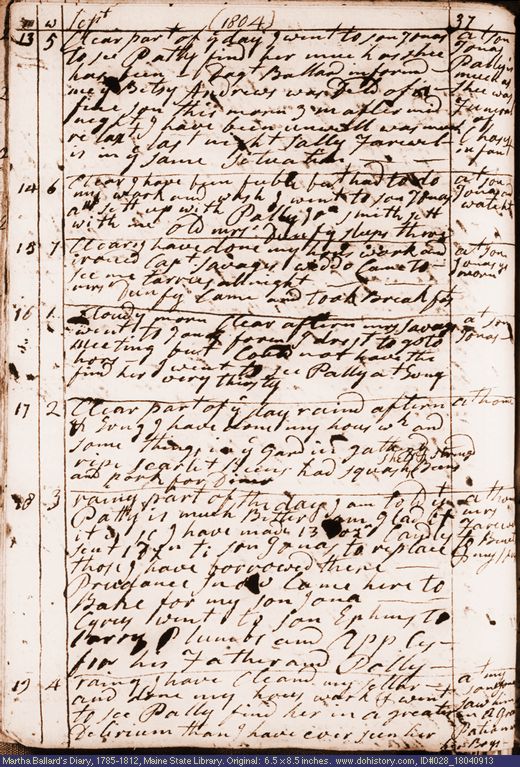 m w Sept (1804) 37
13 5 Clear part of ye day I went to son Jonas
to see Pally find her much as shee
has been Dag Ballard inform
me yt Betsy Andrews was D d of a
fine son this morn
night I have been unwell was
last night Sally Farewel
is in ye same
at son
Jonas
Pally is
much as
shee was
Funeral
of
infant
14 6 Clear I have been feeble but had to do
my work and wash I went to son Jonas
and sett up with Pally Smith sett
with me old mrs Dunfy sleeps there
at son
Jonas on
watcht
15 7 Clear I have done my hous work and
Capt Savages came to
see me tarries all night
mrs Dunfy Came and took Breakfst
at son
Jonas
morn
16 1 Cloudy morn Clear aftern mrs Savage
went to I drest to go to
meeting but Could not have the
hors I went to see Pally at Evng
find her very thirsty
at son
Jonas
17 2 Clear part of ye day raind aftern
& Evng I have done my hous wk and
some things in ye gardin gatherd
ripe scarlet Beens had squash Beens
and pork for Diner
at home
18 3 raing part of the day I am told yt
Pally is much Better I am glad if
it is so I have made 13 Doz Candles
sent 1 Dzn to son Jonas to replace
those I have borrowed there
Prudance Snow Came here to
Bake for my son Jona
Cyrus went to son Ephms to
Carry Plumbs and Apples
for his Father and Pally
at home
mrs
Farewel
19 4 raing I have Cleand my sellar
and done my hous work I went
to see Pally find her in a greater
Delirium than I have ever seen her
at my
sons
saw him
Martha Ballard's Diary, 1785-1812, Maine State Library. Original: 6.5 x 8.5 inches. www.dohistory.com, ID#028_18040913